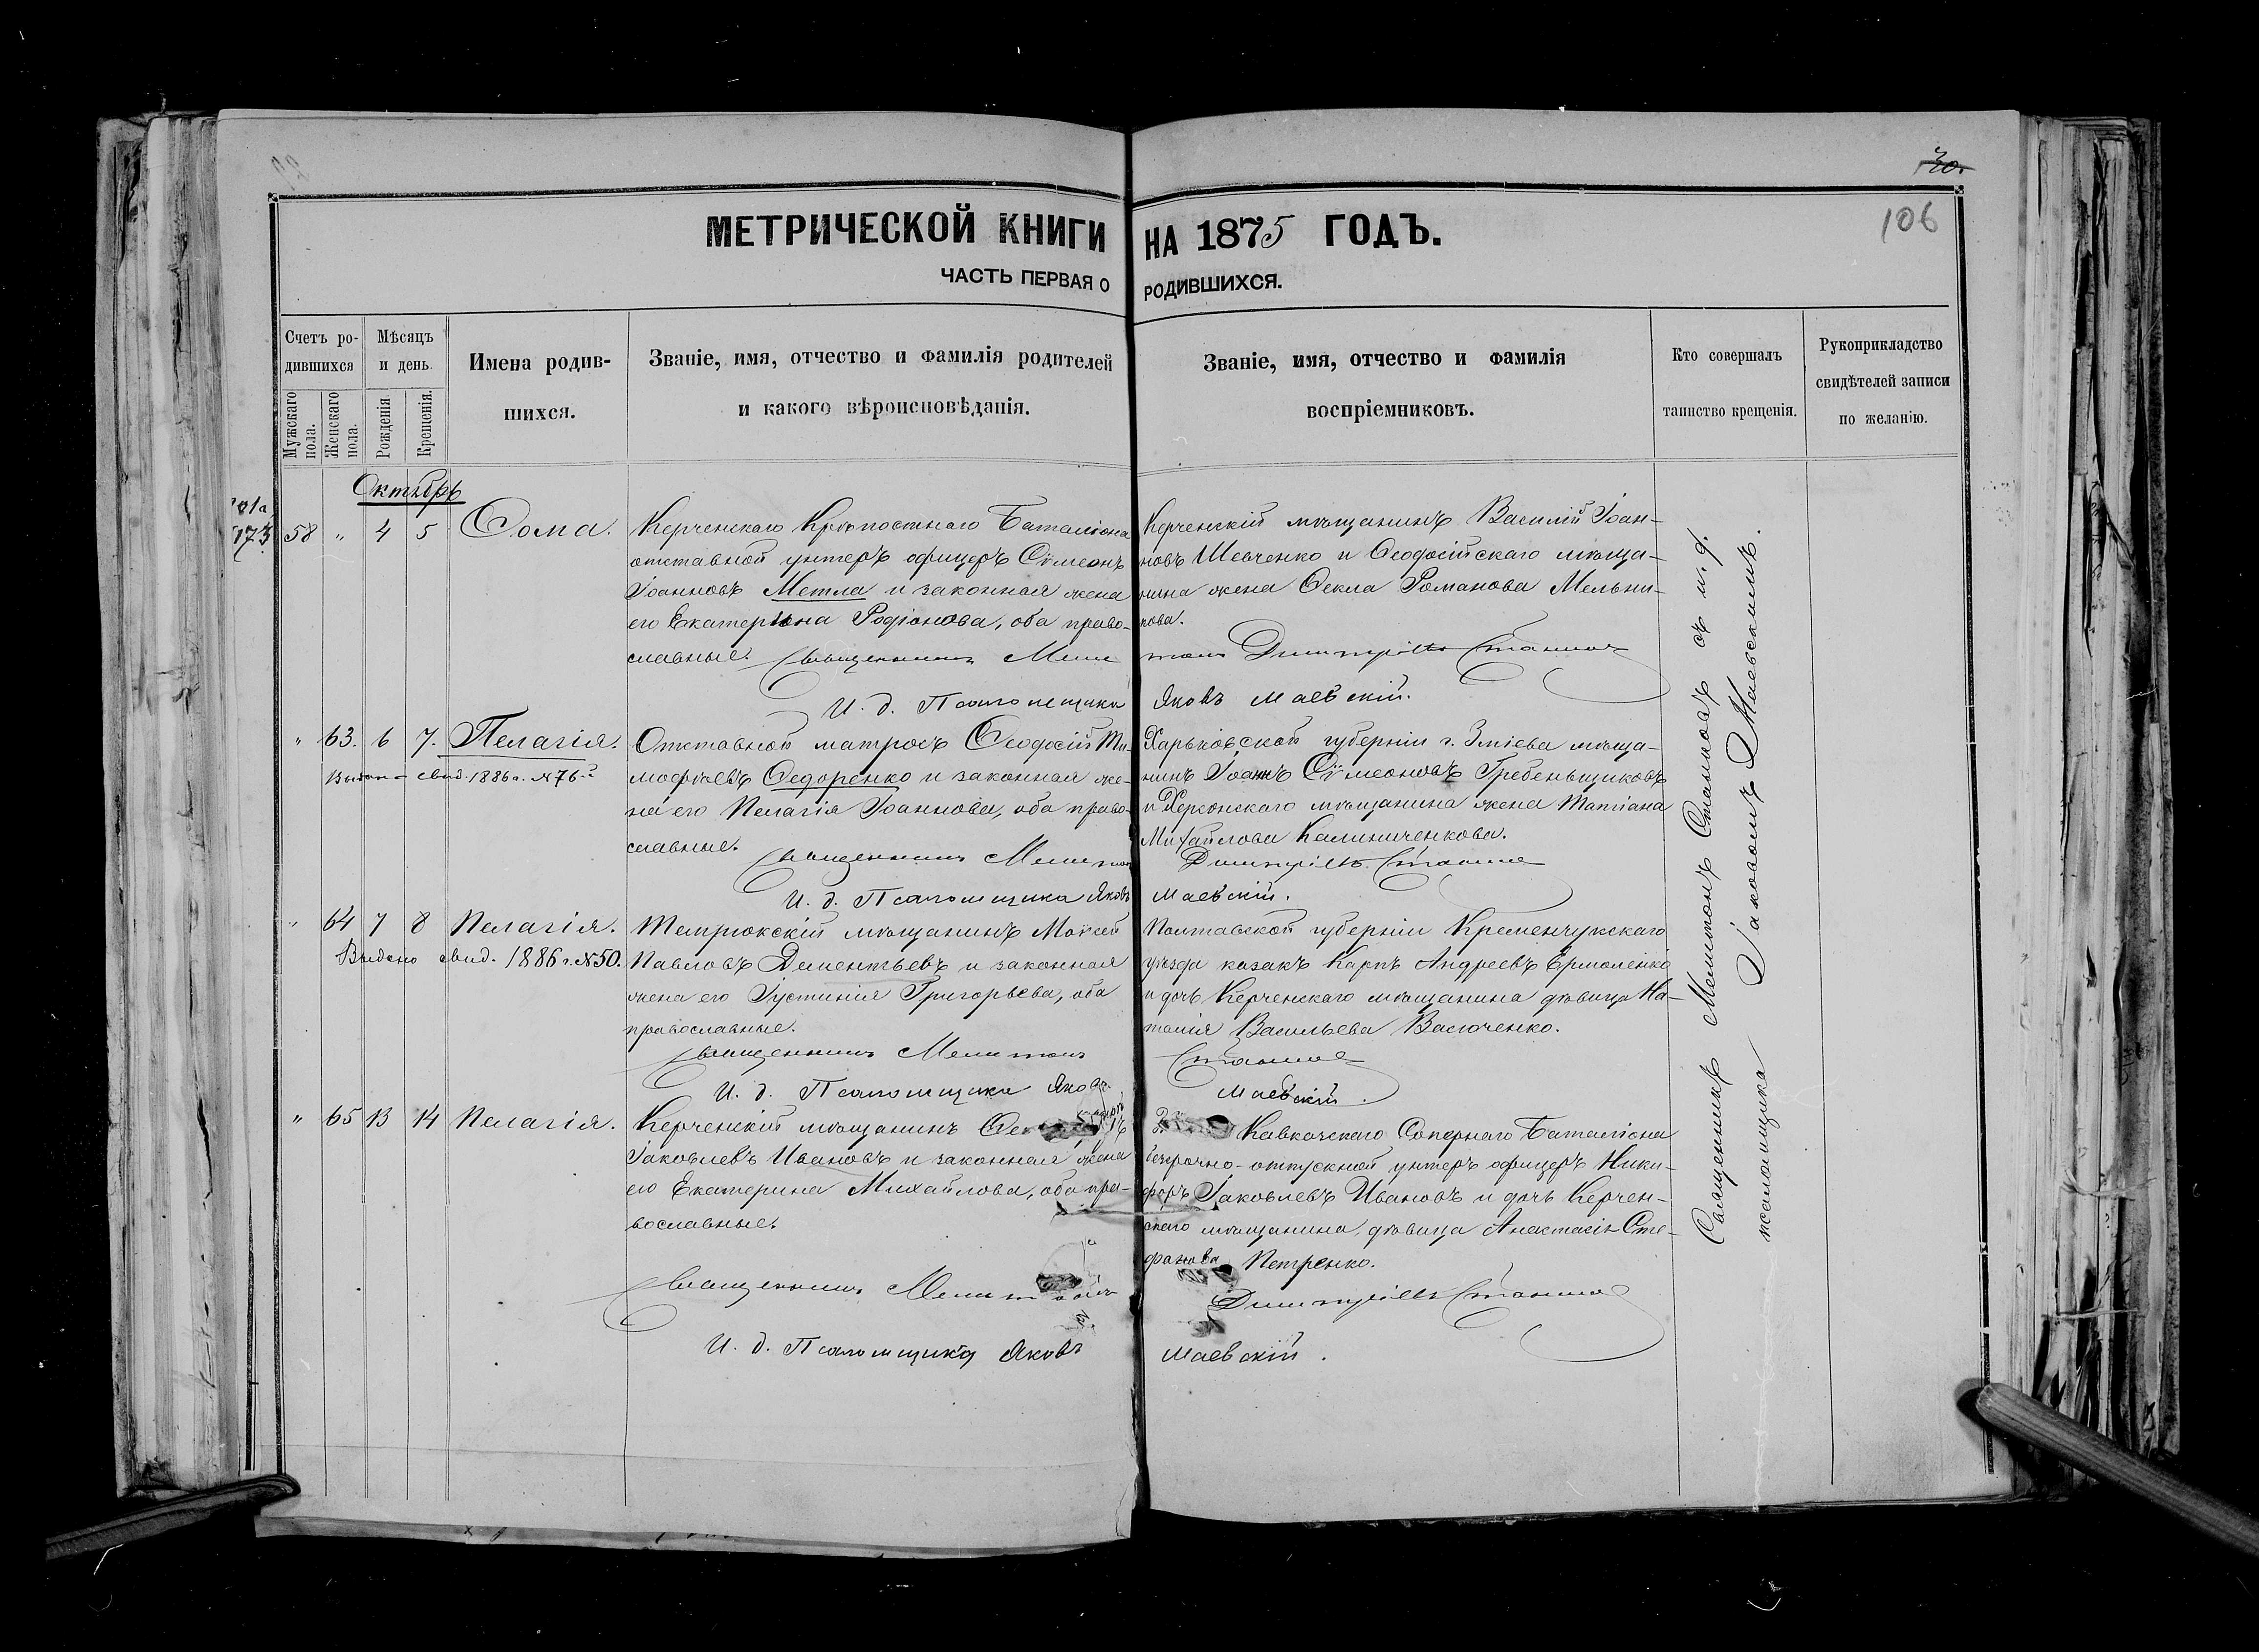 30.
106
МЕТРИЧЕСКОЙ КНИГИ НА 1875 ГОДЪ.
ЧАСТЬ ПЕРВАЯ О РОДИВШИХСЯ.
Счетъ ро-
дившихся
Мужескаго пола.
Женскаго пола.
Мѣсяцъ
и день.
Рожденія.
Крещенія.
Имена родив-
шихся.
Званіе, имя, отчество и фамилія родителей
и какого вѣроисповѣданія.
Званіе, имя, отчество и фамилія
воспріемниковъ.
Кто совершалъ
таинство крещенія.
Рукоприкладство
свидѣтелей записи
по желанію.
Октябрь
173
58 " 4 5 Ѳома.
Керченскаго Крѣпостнаго Баталіона
отставной унтеръ офицеръ Сѵмеонъ
Іоанновъ Метла и законная жена
его Екатерина Родіонова, оба право-
славные.
Керченскій мѣщанинъ Василій Іоан-
новъ Шевченко и Ѳеодосійскаго мѣща-
нина жена Ѳекла Романова Мельни-
кова.
Священникъ Мелитонъ Димитріевъ Станновъ
И. д. Псаломщика Яковъ Маевскій.
" 63. 6 7. Пелагія.
свид. 1886 г. №76-й
Отставной матросъ Ѳеодосій Ти-
моѳѣевъ Ѳедоренко и законная же-
на его Пелагія Іоаннова, оба право-
славные.
Харьковской губерніи г. Зміева мѣща-
нинъ Іоаннъ Сѵмеоновъ Гребеньщиковъ
и Херсонскаго мѣщанина жена Татіана
Михайлова Калиниченкова.
Священникъ Мелитонъ Димитріевъ Станновъ
И. д. Псаломщика Яковъ Маевскій.
" 64 7 8 Пелагія.
Выдано свид. 1886 г. №50.
Темрюкскій мѣщанинъ Моисей
Павловъ Дементьевъ и законная
жена его Іустинія Григорьева, оба
православные.
Полтавской губерніи Кременчукскаго
уѣзда казакъ Карпъ Андреевъ Ермоленко
и дочь Керченскаго мѣщанина дѣвица На-
талія Васильева Васюченко.
Священникъ Мелитонъ Станновъ
И. д. Псаломщика Яковъ Маевскій.
" 65 13 14 Пелагія.
Керченскій мѣщанинъ
Іаковлевъ Ивановъ и законная жена
его Екатерина Михайлова, оба пра-
вославные.
Кавказскаго Сапернаго Баталіона
безсрочно-отпускной унтеръ офицеръ Ники-
форъ Іаковлевъ Ивановъ и дочь Керчен-
скаго мѣщанина, дѣвица Анастасія Сте-
фанова Петренко.
Священникъ Мелитонъ Димитріевъ Станновъ
И. д. Псаломщика Яковъ Маевскій.
Священникъ Мелитонъ Станновъ съ и. д.
псаломщика Іаковомъ Маевскимъ.